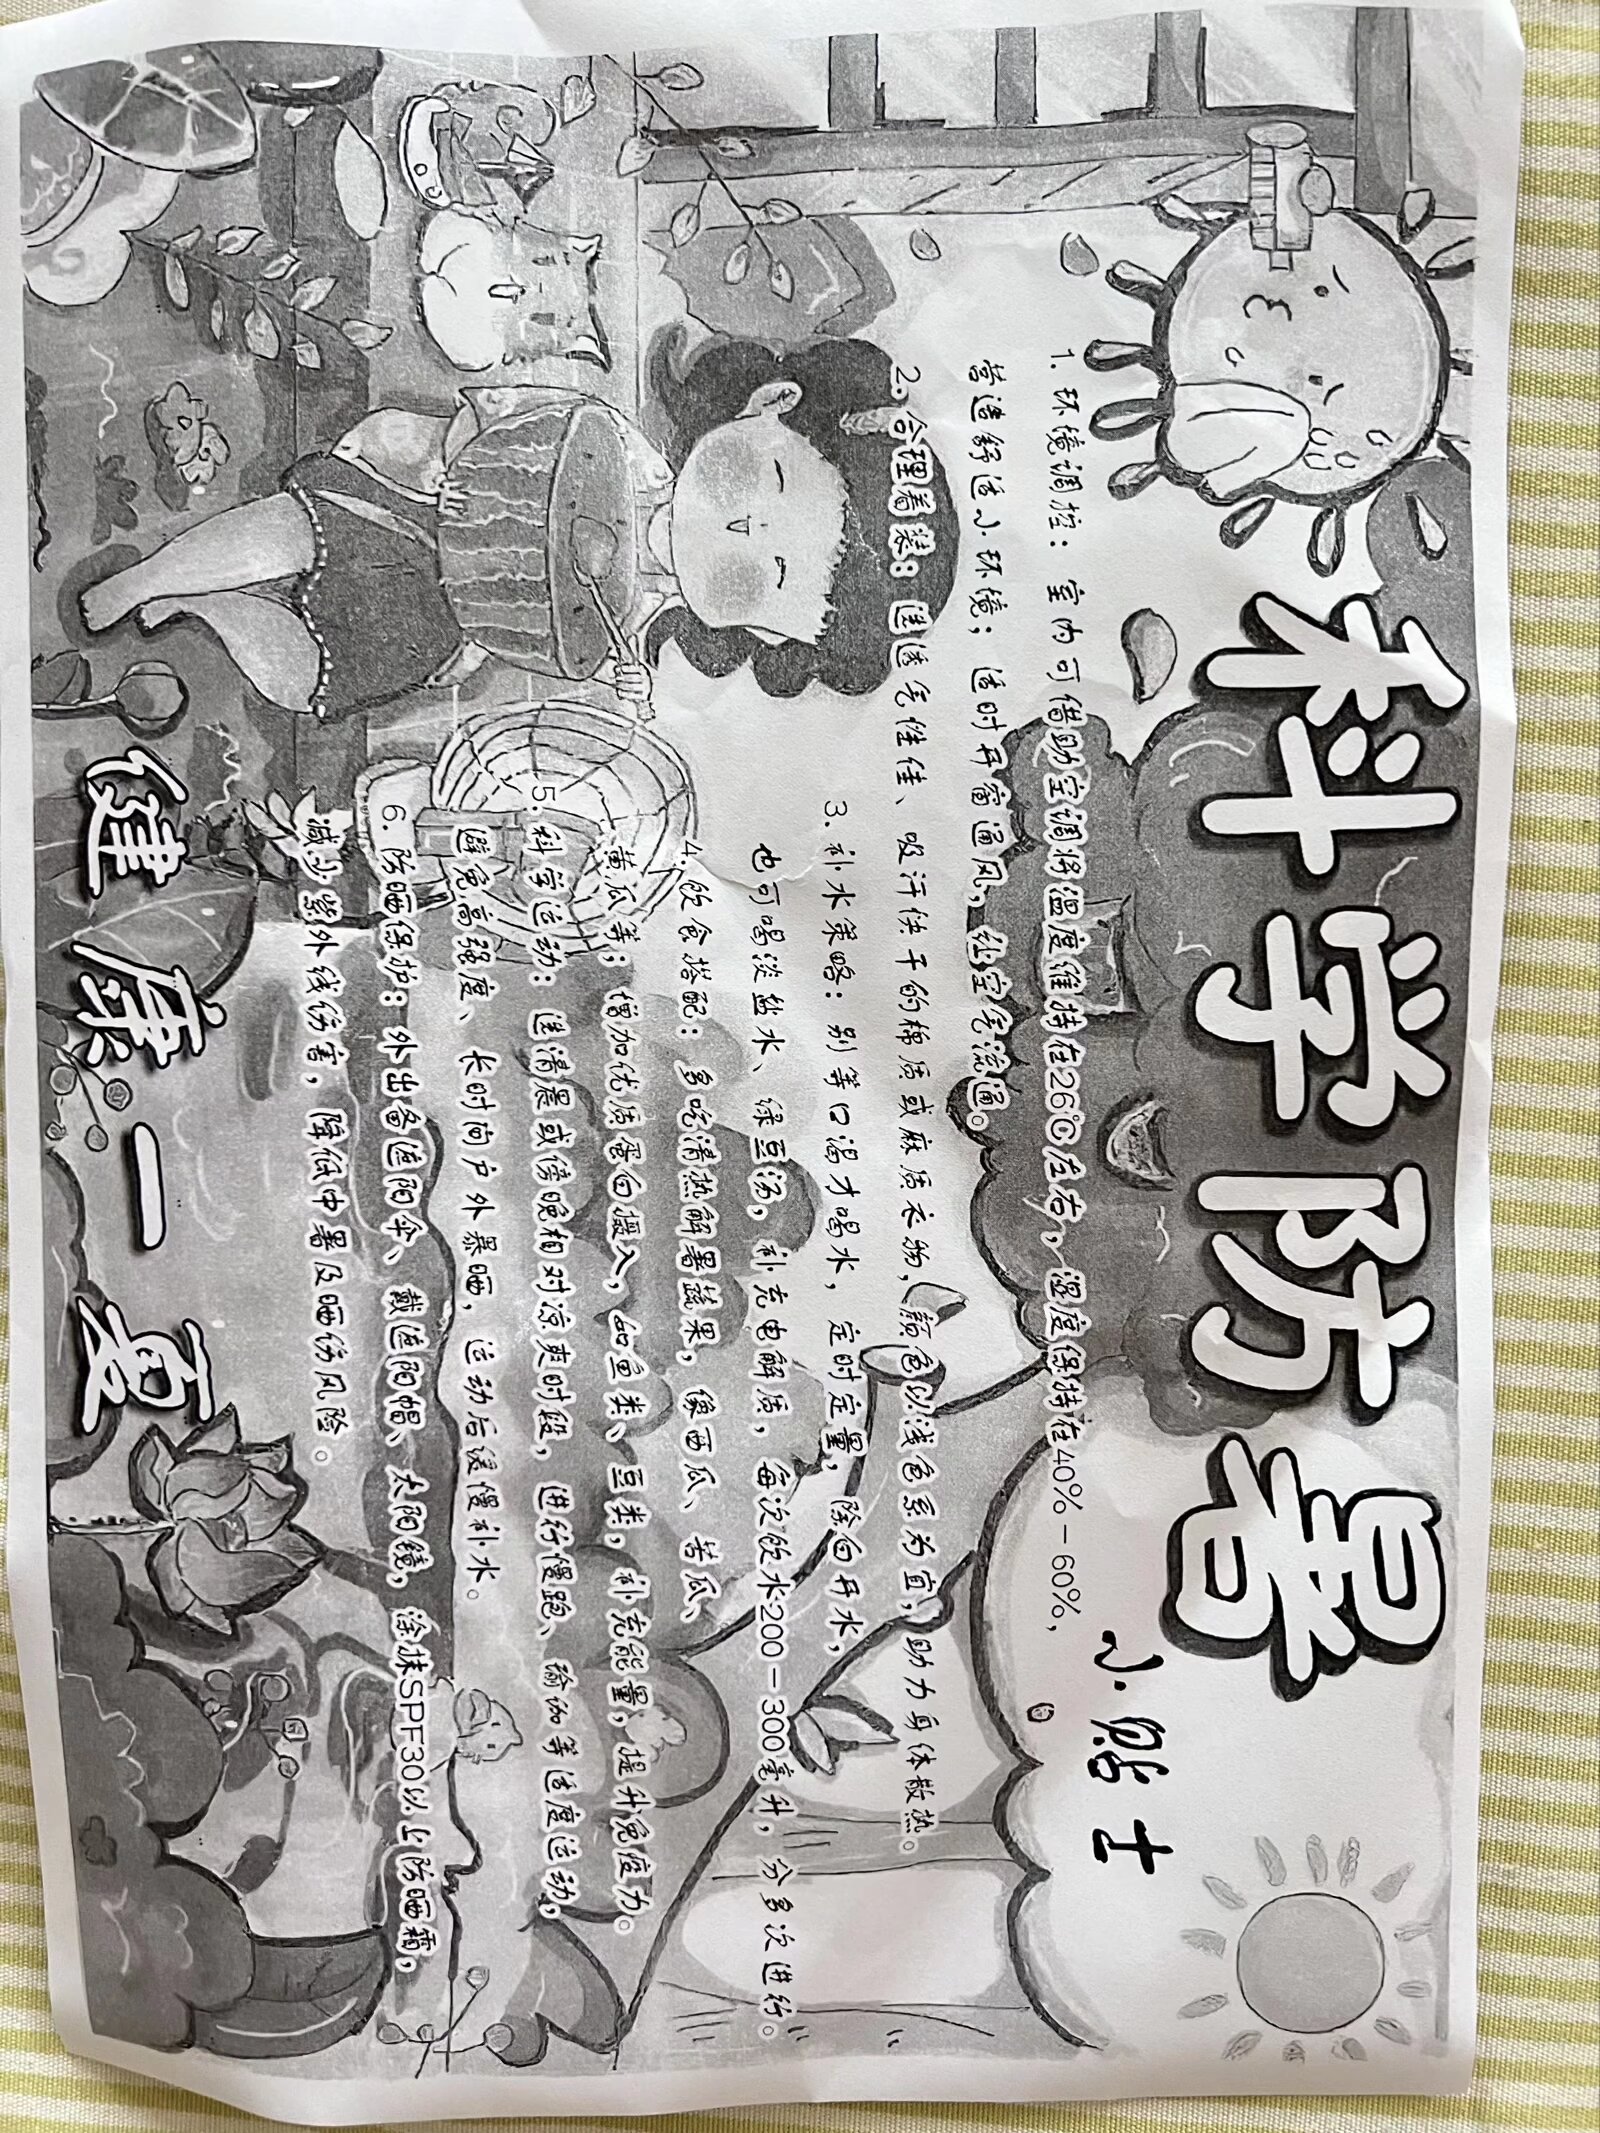 科学防暑
小贴士
1. 环境调控：室内可借助空调将温度维持在26℃左右，湿度保持在40%-60%，
营造舒适小环境；适时开窗通风，让空气流通。
2. 合理着装：选透气性佳、吸汗快干的棉质或麻质衣物，颜色以浅色系为宜，助力身体散热。
3. 补水策略：别等口渴才喝水，定时定量，除白开水，
也可喝淡盐水、绿豆汤，补充电解质，每次饮水200-300毫升，分多次进行。
4. 饮食搭配：多吃清热解暑蔬果，像西瓜、苦瓜、
黄瓜等；增加优质蛋白摄入，如鱼类、豆类，补充能量，提升免疫力。
5. 科学运动：选清晨或傍晚相对凉爽时段，进行慢跑、瑜伽等适度运动，
避免高强度、长时间户外暴晒，运动后缓慢补水。
6. 防晒保护：外出备遮阳伞、戴遮阳帽、太阳镜，涂抹SPF30以上防晒霜，
减少紫外线伤害，降低中暑及晒伤风险。
健康一夏